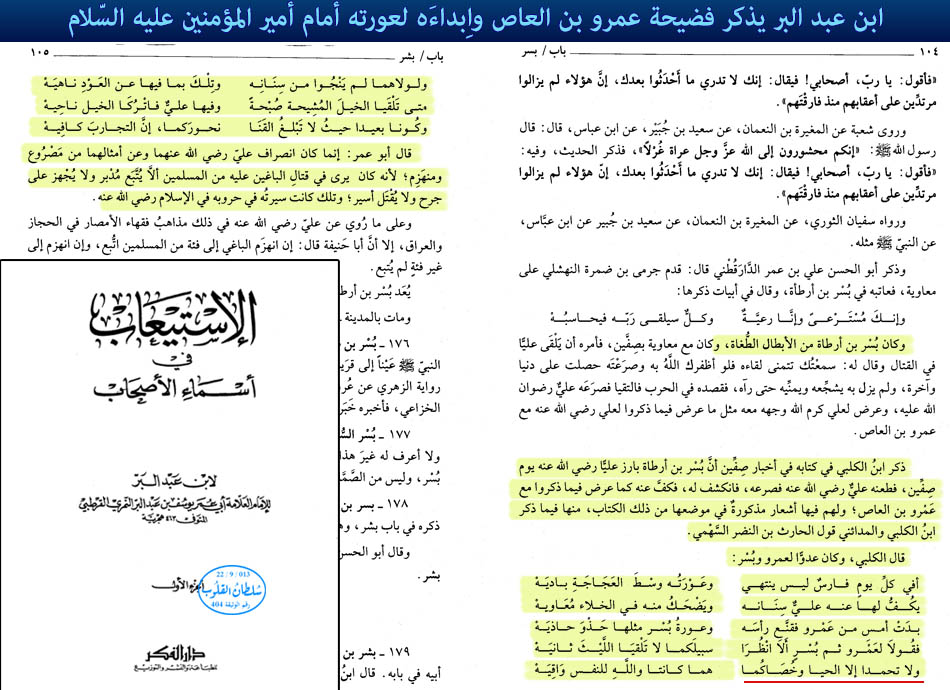 ابن عبد البر يذكر فضيحة عمرو بن العاص وإبداءَه لعورته أمام أمير المؤمنين عليه السّلام
١٠٤ باب/ بسر
«فأقول: يا ربّ، أصحابي! فيقال: إنك لا تدري ما أَحْدَثُوا بعدك، إنَّ هؤلاء لم يزالوا
مرتدِّين على أعقابهم منذ فارقْتَهم».
وروى شعبة عن المغيرة بن النعمان، عن سعيد بن جُبَيْر، عن ابن عباس، قال: قال
رسول الله ﷺ: «إنكم محشورون إلى الله عزَّ وجل عراة غُرْلاً»، فذكر الحديث، وفيه:
«فأقول: يا ربّ، أصحابي! فيقال: إنك لا تدري ما أَحْدَثُوا بعدك، إنَّ هؤلاء لم يزالوا
مرتدِّين على أعقابهم منذ فارقْتَهم».
ورواه سفيان الثوري، عن المغيرة بن النعمان، عن سعيد بن جُبير عن ابن عبَّاس،
عن النبيّ ﷺ مثله.
وذكر أبو الحسن علي بن عمر الدَّارَقُطْني قال: قدم جرمى بن ضمرة النهشلي على
معاوية، فعاتبه في بُسْر بن أرطأة، وقال في أبيات ذكرها:
وإنـك مُسْـتَـرْعـىً وإنَّـا رعيَّـةٌ وكـلٌّ سيلقـى رَبّـه فيحاسبُـهْ
وكان بُسْر بن أرطاة من الأبطال الطُّغاة، وكان مع معاوية بصِفِّين، فأمره أن يَلْقَى عليًّا
في القتال وقال له: سمعْتُك تتمنى لقاءه فلو أظفرك اللَّهُ به وصرَعْتَه حصلت على دنيا
وآخرة، ولم يزل به يشجِّعه ويمنِّيه حتى رآه، فقصده في الحرب فالتقيا فصرَعَه عليٌّ رضوان
الله عليه، وعرض لعلي كرم الله وجهه معه مثل ما عرض فيما ذكروا لعلي رضي الله عنه مع
عمرو بن العاص.
ذكر ابنُ الكلبي في كتابه في أخبار صِفِّين أنَّ بُسْر بن أرطاة بارز عليًّا رضي الله عنه يوم
صِفِّين، فطعنه عليٌّ رضي الله عنه فصرعه، فانكشف له، فكفَّ عنه كما عرض فيما ذكروا مع
عَمْرو بن العاص؛ ولهم فيها أشعار مذكورةٌ في موضعها من ذلك الكتاب، منها فيما ذكر
ابنُ الكلبي والمدائني قول الحارث بن النضر السَّهْمي.
قال الكلبي، وكان عدوًّا لعمرو وبُسْر:
أفي كلِّ يومٍ فارسٌ ليس ينتهي وعَـوْرَتُـه وسـطَ العَجَاجَـةِ بـاديـهْ
يكـفُّ لهـا عنـه علـيٌّ سِنَـانـه ويَضْحَـكُ منه في الخلاء مُعَـاويهْ
بـدَتْ أمس مـن عَمْـرو فقنَّـع رأسَـه وعـورةُ بُسْـر مثلهـا حَـذْوَ حـاذيـهْ
فقُـولاَ لعَمْـرو ثـم بُسْـرٍ أَلاَ انْظُـرَا سبيلكمـا لا تَلْقَيَـا اللَّيْـثَ ثـانيـهْ
ولا تحمدا إلا الحيـا وخُصَـاكُمـا همـا كـانتـا واللَّهِ للنفـسِ واقيـهْ
باب/ بشر ١٠٥
ولـولاهمـا لـم يَنْجُـوا مـن سِنَـانِـه وتِلْـكَ بمـا فيهـا عـن العَـوْدِ ناهيَهْ
متى تَلْقَيَا الخيـلَ المُشِيحـة صُبْحَـةً وفيهـا علـيٌّ فـاتْرُكَـا الخيـل ناحِيـهْ
وكُـونَـا بعيـدا حيـثُ لا تَبْلـغُ القَنَـا نحـورَكمـا، إنَّ التجـاربَ كـافِيـهْ
قال أبو عمر: إنما كان انصراف عليّ رضي الله عنهما وعن أمثالهما من مَصْرُوع
ومنهَزِم؛ لأنه كان يرى في قتال الباغين عليه من المسلمين ألاَّ يُتَّبَع مُدْبر ولا يُجْهَز على
جرح ولا يُقْتَل أسير؛ وتلك كانت سيرتُه في حروبه في الإسلام رضي الله عنه.
وعلى ما رُوي عن عليّ رضي الله عنه في ذلك مذاهبُ فقهاء الأمصار في الحجاز
والعراق، إلا أنَّ أبا حَنيفة قال: إن انهزم الباغي إلى فئة من المسلمين اتُّبع، وإن انهزم إلى
غير فئةٍ لم يُتبع.
يُعَد بُسْر بن أرطا
ومات بالمدينة
١٧٦ ـ بُسْر بن
النبيّ ﷺ عَيْناً إلى قري
رواية الزهري عن عُر
الخزاعي، فأخبره خَبَر
١٧٧ ـ بُسْر السُّ
ولا أعرف له غيرَ هذا
بُسْر، وليس من الصَّ
١٧٨ ـ بسر بن
ذكره في باب بشر، وه
وقال أبو الحسن
بشر.
١٧٩ ـ بشر بن
أبيه في بابه. قال ابنُ
الإستيعاب
في
أسماء الأصحاب
لابن عبد البر
للإمام العلامة أبي عمر يوسف بن عبد البر النمري القرطبي
المتوفى ٤٦٣ هجرية
الجزء الأول
22 / 9 / 013
سلطان القلوب
رقم الوثيقة 404
دار الفكر
للطباعة والنشر والتوزيع